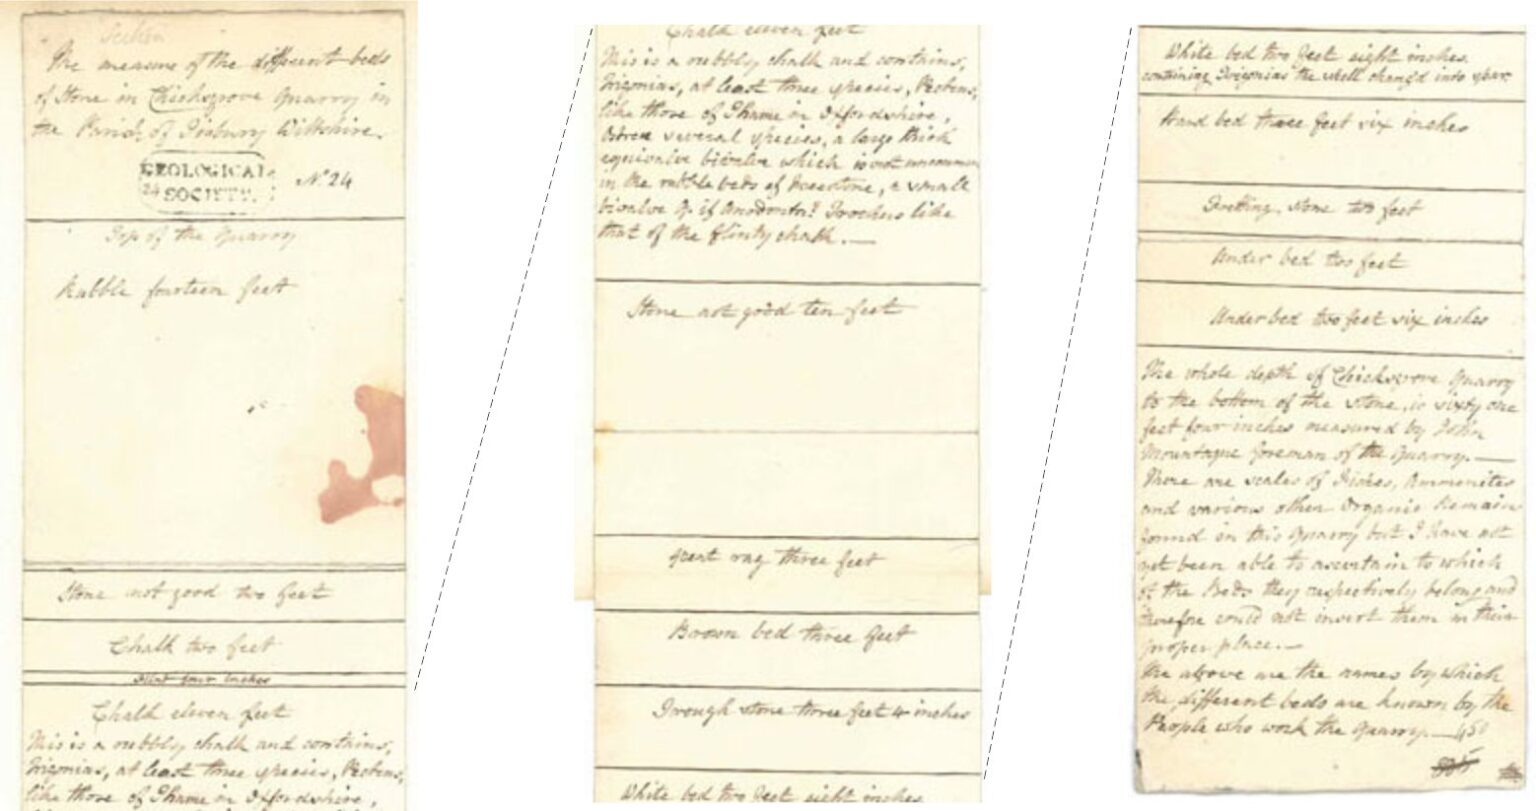 Section
The measure of the different beds
of Stone in Chicksgrove Quarry in
the Parish of Tisbury Wiltshire.
GEOLOGICAL
24 SOCIETY.
No. 24
Top of the Quarry
Rubble fourteen feet
Stone not good two feet
Chalk two feet
Flint four inches
Chalk eleven feet
This is a rubbly chalk and contains,
Trigonias, at least three species, Pectens,
like those of Thame in Oxfordshire,
Chalk eleven feet
This is a rubbly chalk and contains,
Trigonias, at least three species, Pectens,
like those of Thame in Oxfordshire,
Ostreæ several species, a large thick
equivalve bivalve which is not uncommon
in the rubble beds of a small
bivalve q. if Anodonta? Trochus like
that of the flinty chalk.—
Stone not good ten feet
Great rag three feet
Brown bed three feet
Trough stone three feet 4 inches
White bed two feet eight inches
White bed two feet eight inches
containing Trigonias the shell chang'd into spar.
Hard bed three feet six inches
Fretting stone two feet
Under bed two feet
Under bed two feet six inches
The whole depth of Chicksgrove Quarry
to the bottom of the stone, is sixty one
feet four inches measured by John
Mountague foreman of the Quarry.—
There are scales of Fishes, Ammonites
and various other Organic Remains
found in this Quarry but I have not
yet been able to ascertain to which
of the Beds they respectively belong and
therefore could not insert them in their
proper place.—
The above are the names by which
the different beds are known by the
People who work the Quarry.— 450